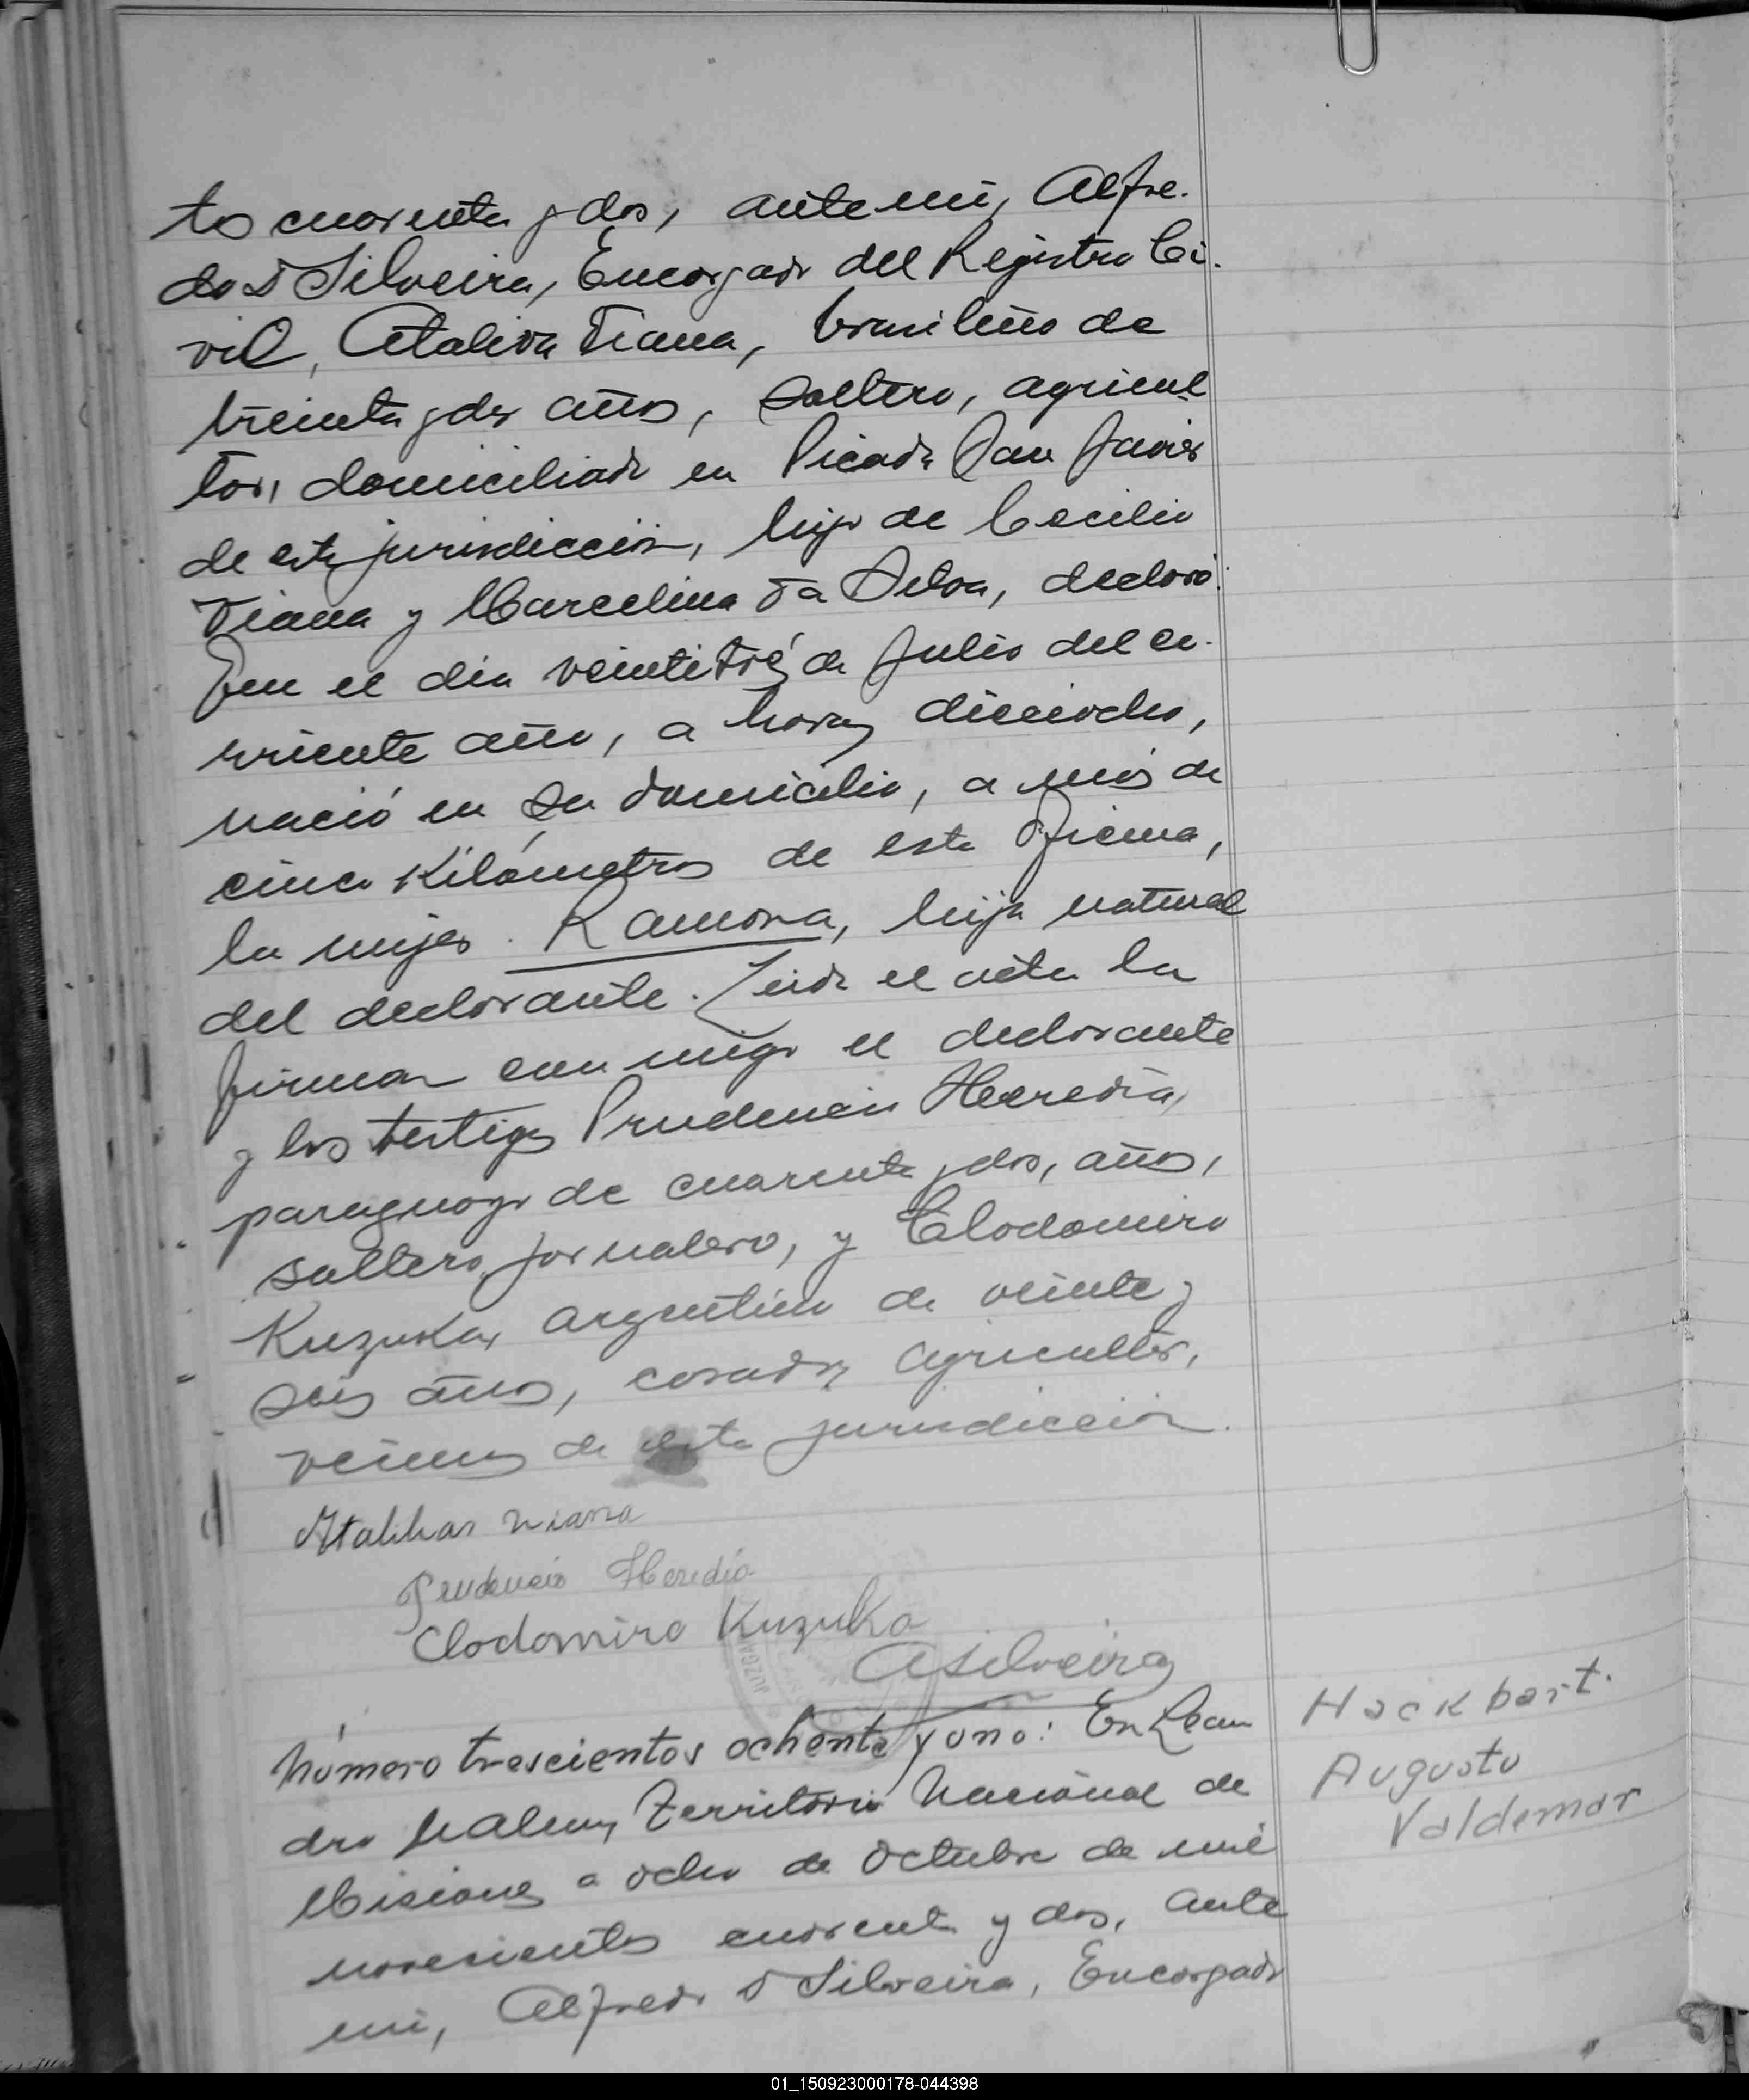 to cuarenta y dos, ante mi, Alfre-
do D Silveira, Encargado del Registro Ci-
vil, Ataliva Viana, brasileño de
treinta y dos años, soltero, agricul-
tor, domiciliado en Picada San Javier
de esta jurisdicción, hijo de Cecilio
Viana y Marcelina da Silva, declaró:
Que el dia veintitrés de Julio del co-
rriente año, a horas dieciocho,
nació en su domicilio, a más de
cinco kilómetros de esta Oficina,
la mujer Ramona, hija natural
del declarante. Leida el acta la
firman conmigo el declarante
y los testigos Prudencio Heredia,
paraguayo de cuarenta y dos, años,
soltero, jornalero, y Clodomiro
Kuzuka, argentino de veinte y
seis años, casado, agricultor,
vecinos de esta jurisdicción.
Atalibar viana
Prudencio Heredia
Clodomiro Kuzuka
ASilveira
JUZGA
Número trescientos ochenta y uno: En Lean
dro N Alem, Territorio Nacional de
Misiones a ocho de Octubre de mil
novecientos cuarenta y dos, ante
mi, Alfredo D Silveira, Encargado
Hackbart.
Augusto
Valdemar
01_150923000178-044398